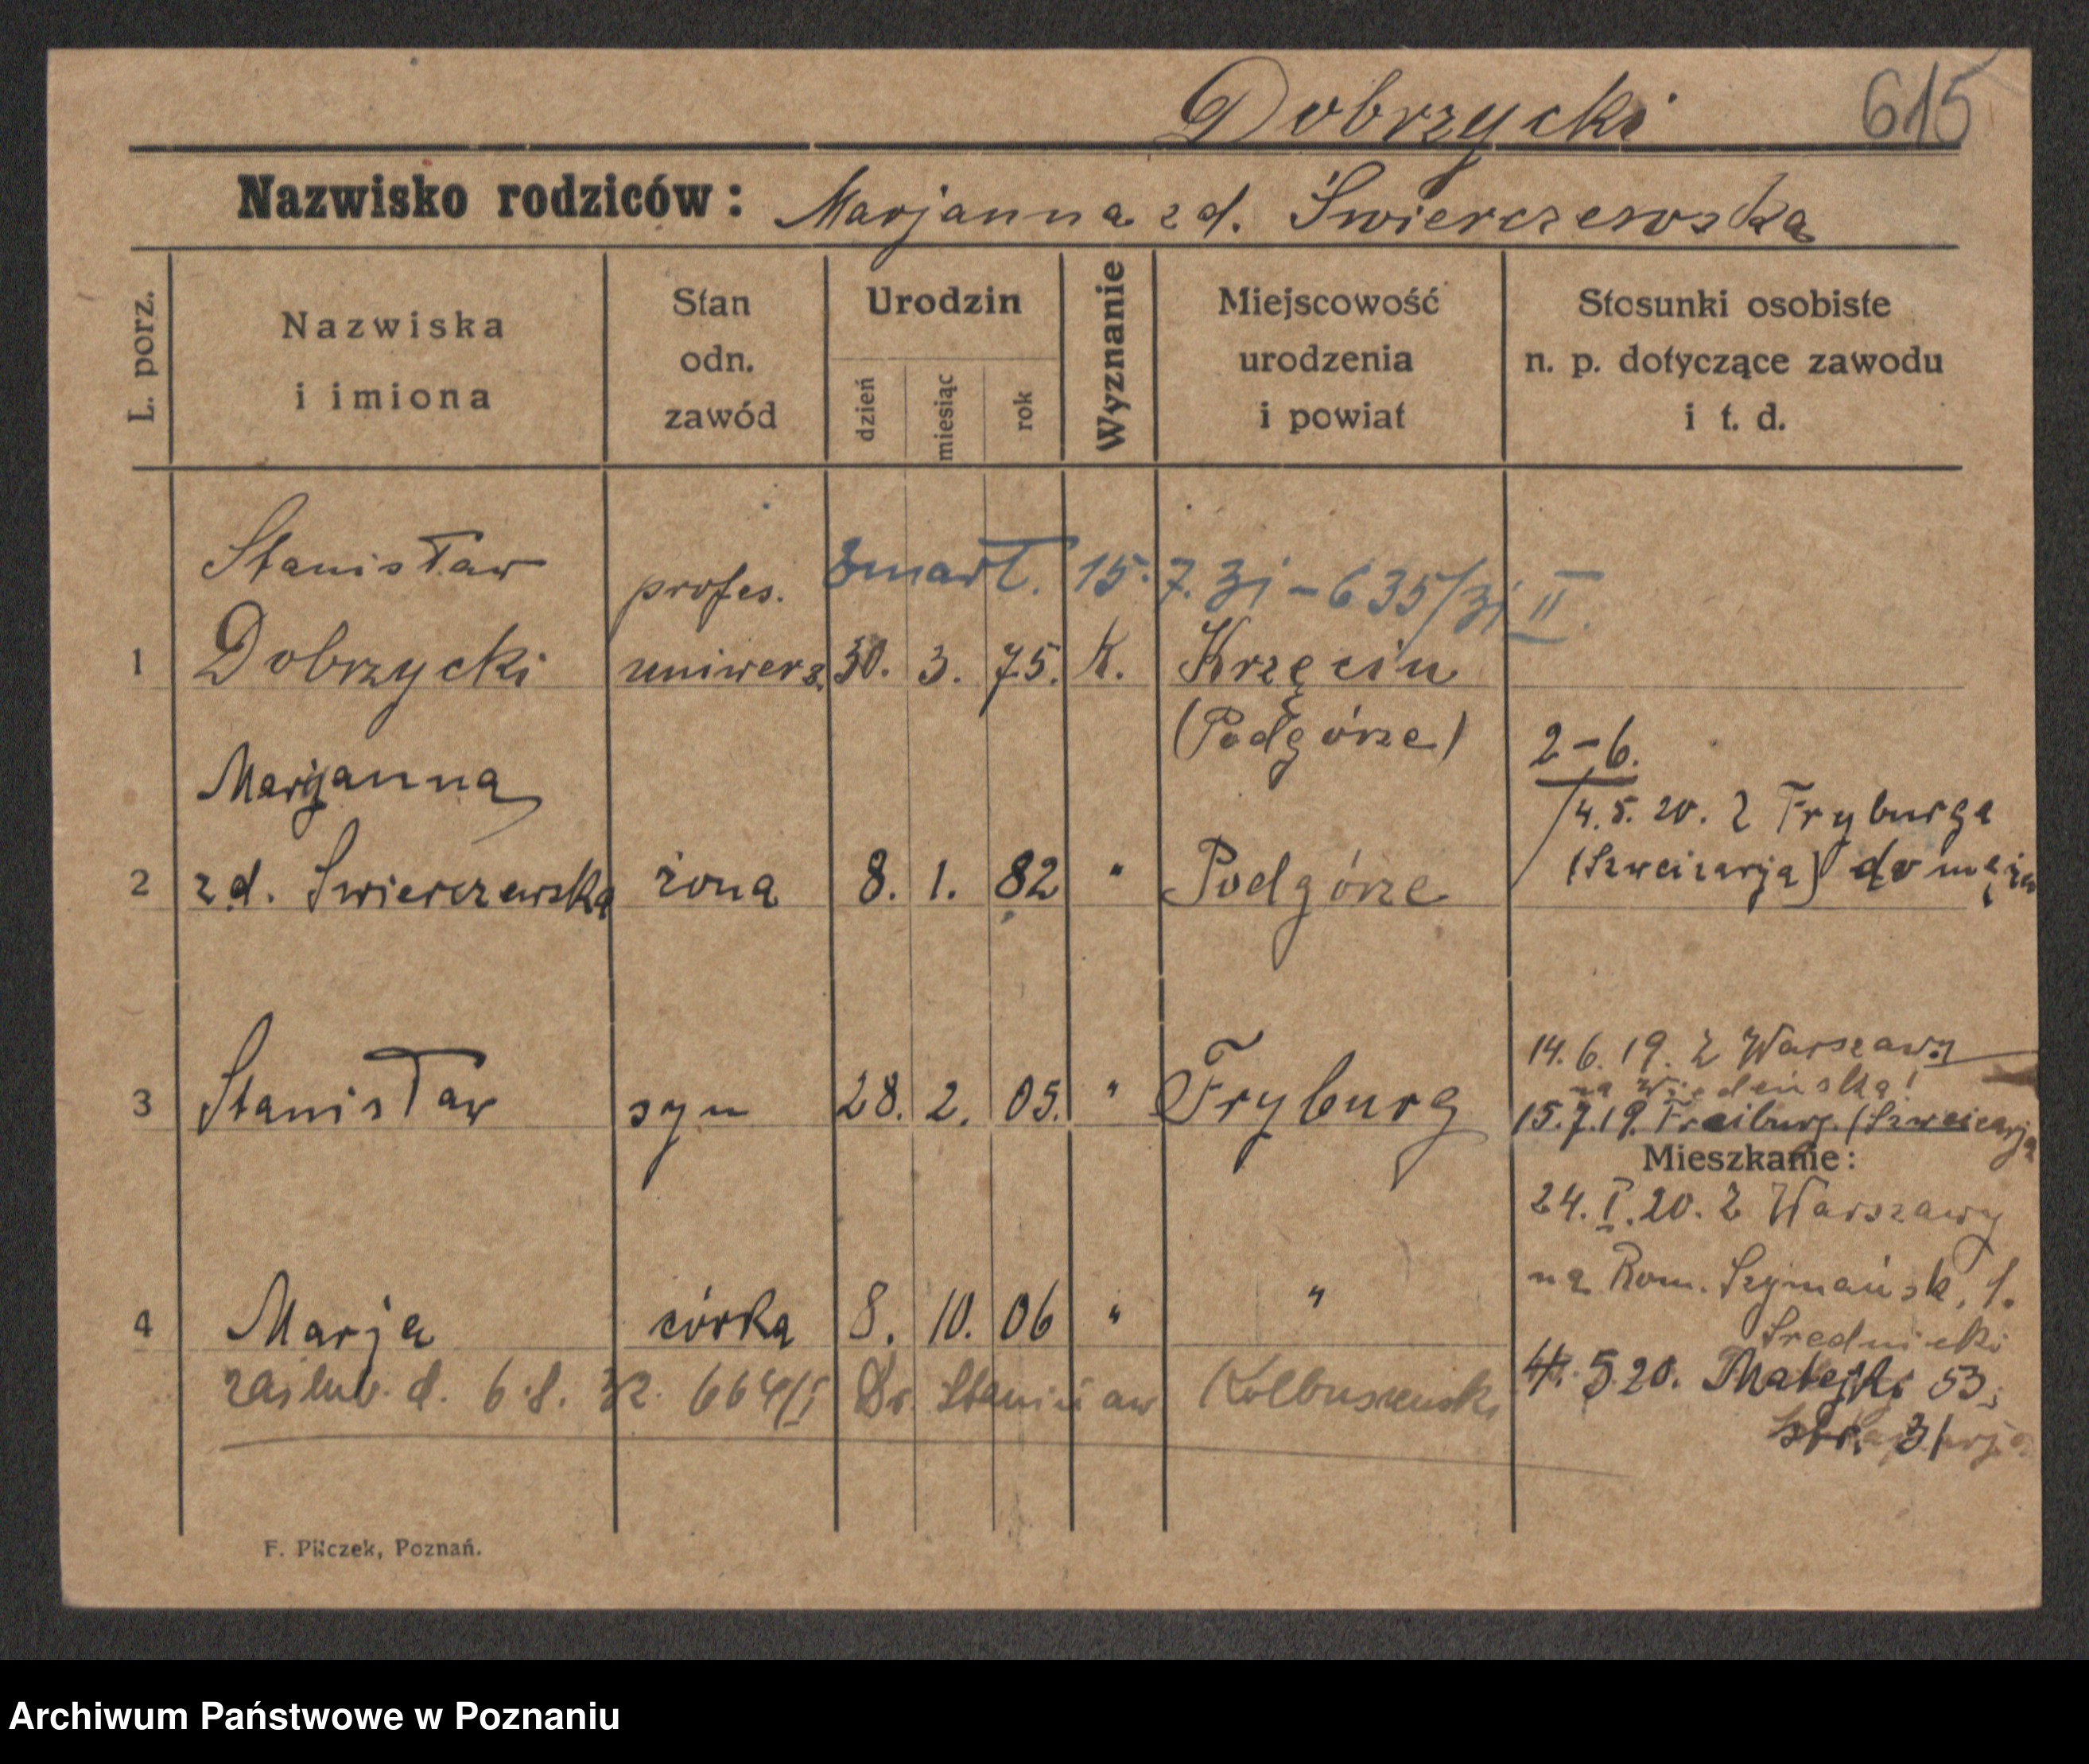 Dobrzycki 615
Nazwisko rodziców: Marjanna z d. Świerczewska
L. porz.
Nazwiska
i imiona
Stan
odn.
zawód
Urodzin
dzień
miesiąc
rok
Wyznanie
Miejscowość
urodzenia
i powiat
Stosunki osobiste
n. p. dotyczące zawodu
i t. d.
Stanisław profes. zmarł. 15.7.31 - 635/31 II.
1 Dobrzycki uniwers. 30. 3. 75. K. Krzęcin
(Podgórze)
2-6.
Marjanna
14.5.20. z Fryburga
(Szweicarja) do męża
2 z d. Swierczewska żona 8. 1. 82 " Podgórze
14.6.19. z Warszawy
na Wiedeńską!
3 Stanisław syn 28. 2. 05. " Fryburg 15.7.19. Freiburg. (Szweicarja
Mieszkanie:
24.I.20. z Warszawy
na Rom. Szymańsk. 1.
Srednicki
4 Marja córka 8. 10. 06 " "
5.20. Matejki 53,
zaślub. d. 6.8. 32. 664/I Dr. Stanisław Kolbuszewski
str. 31
F. Pilczek, Poznań.
Archiwum Państwowe w Poznaniu